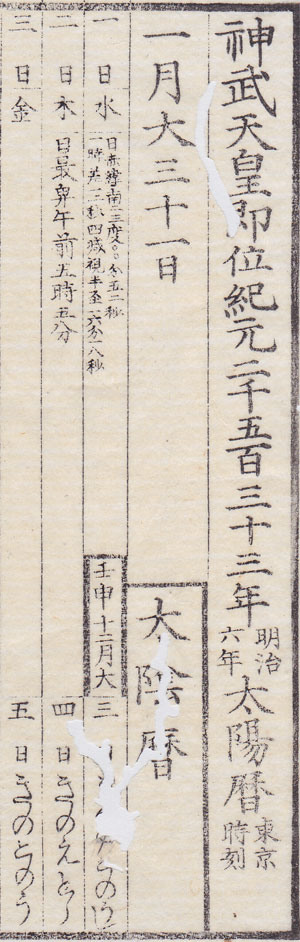 神武天皇即位紀元二千五百三十三年 明治六年 太陽暦 東京時刻
一月大三十一日 太陰暦
一日水 日赤緯南二三度〇〇分五二秒
一時差一二秒四減視半至一六分一八秒
壬申十二月大 三
二日木 日最卑午前五時五分 四日きのえとら
三日金 五日きのとのう